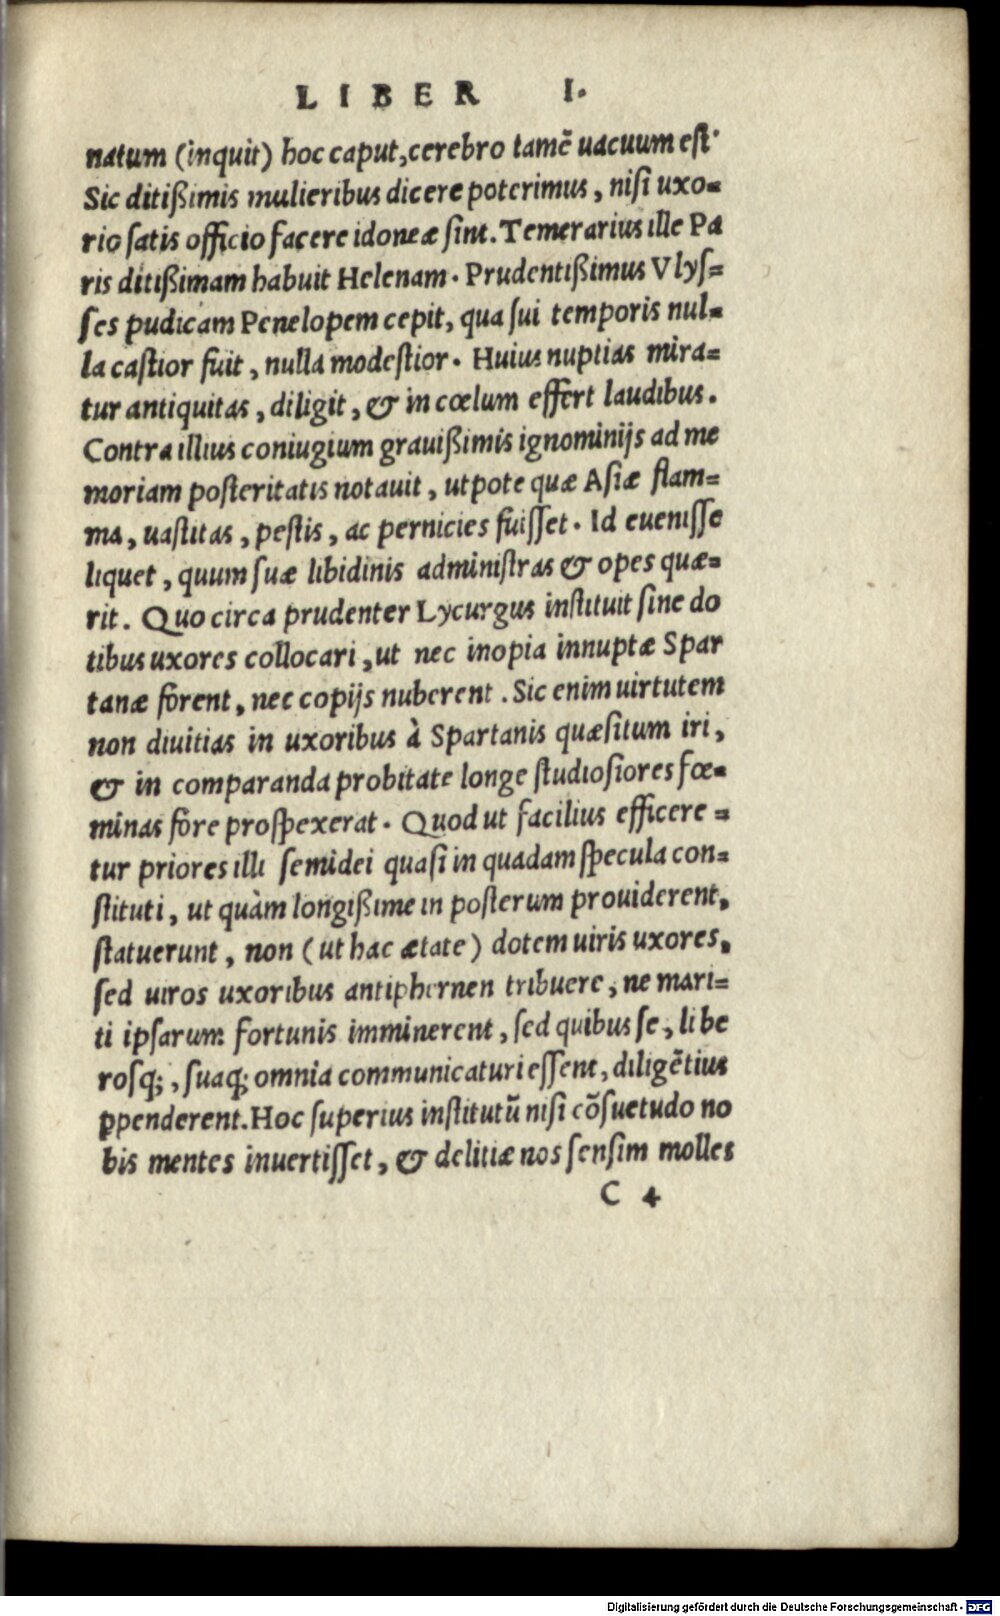 LIBER I.
natum (inquit) hoc caput, cerebro tamē uacuum est.
Sic ditißimis mulieribus dicere poterimus, nisi uxo-
rio satis officio facere idoneæ sint. Temerarius ille Pa
ris ditißimam habuit Helenam. Prudentißimus Vlys-
ses pudicam Penelopem cepit, qua sui temporis nul-
la castior fuit, nulla modestior. Huius nuptias mira-
tur antiquitas, diligit, & in cœlum effert laudibus.
Contra illius coniugium grauißimis ignominijs ad me
moriam posteritatis notauit, utpote quæ Asiæ flam-
ma, uastitas, pestis, ac pernicies fuisset. Id euenisse
liquet, quum suæ libidinis administras & opes quæ-
rit. Quo circa prudenter Lycurgus instituit sine do
tibus uxores collocari, ut nec inopia innuptæ Spar
tanæ forent, nec copijs nuberent. Sic enim uirtutem
non diuitias in uxoribus à Spartanis quæsitum iri,
& in comparanda probitate longe studiosiores fœ-
minas fore prospexerat. Quod ut facilius efficere-
tur priores illi semidei quasi in quadam specula con-
stituti, ut quàm longißime in posterum prouiderent,
statuerunt, non (ut hac ætate) dotem uiris uxores,
sed uiros uxoribus antiphernen tribuere, ne mari-
ti ipsarum fortunis imminerent, sed quibus se, libe
rosq;, suaq; omnia communicaturi essent, diligētius
ꝑpenderent. Hoc superius institutū nisi cōsuetudo no
bis mentes inuertisset, & delitiæ nos sensim molles
C 4
Digitalisierung gefördert durch die Deutsche Forschungsgemeinschaft - DFG